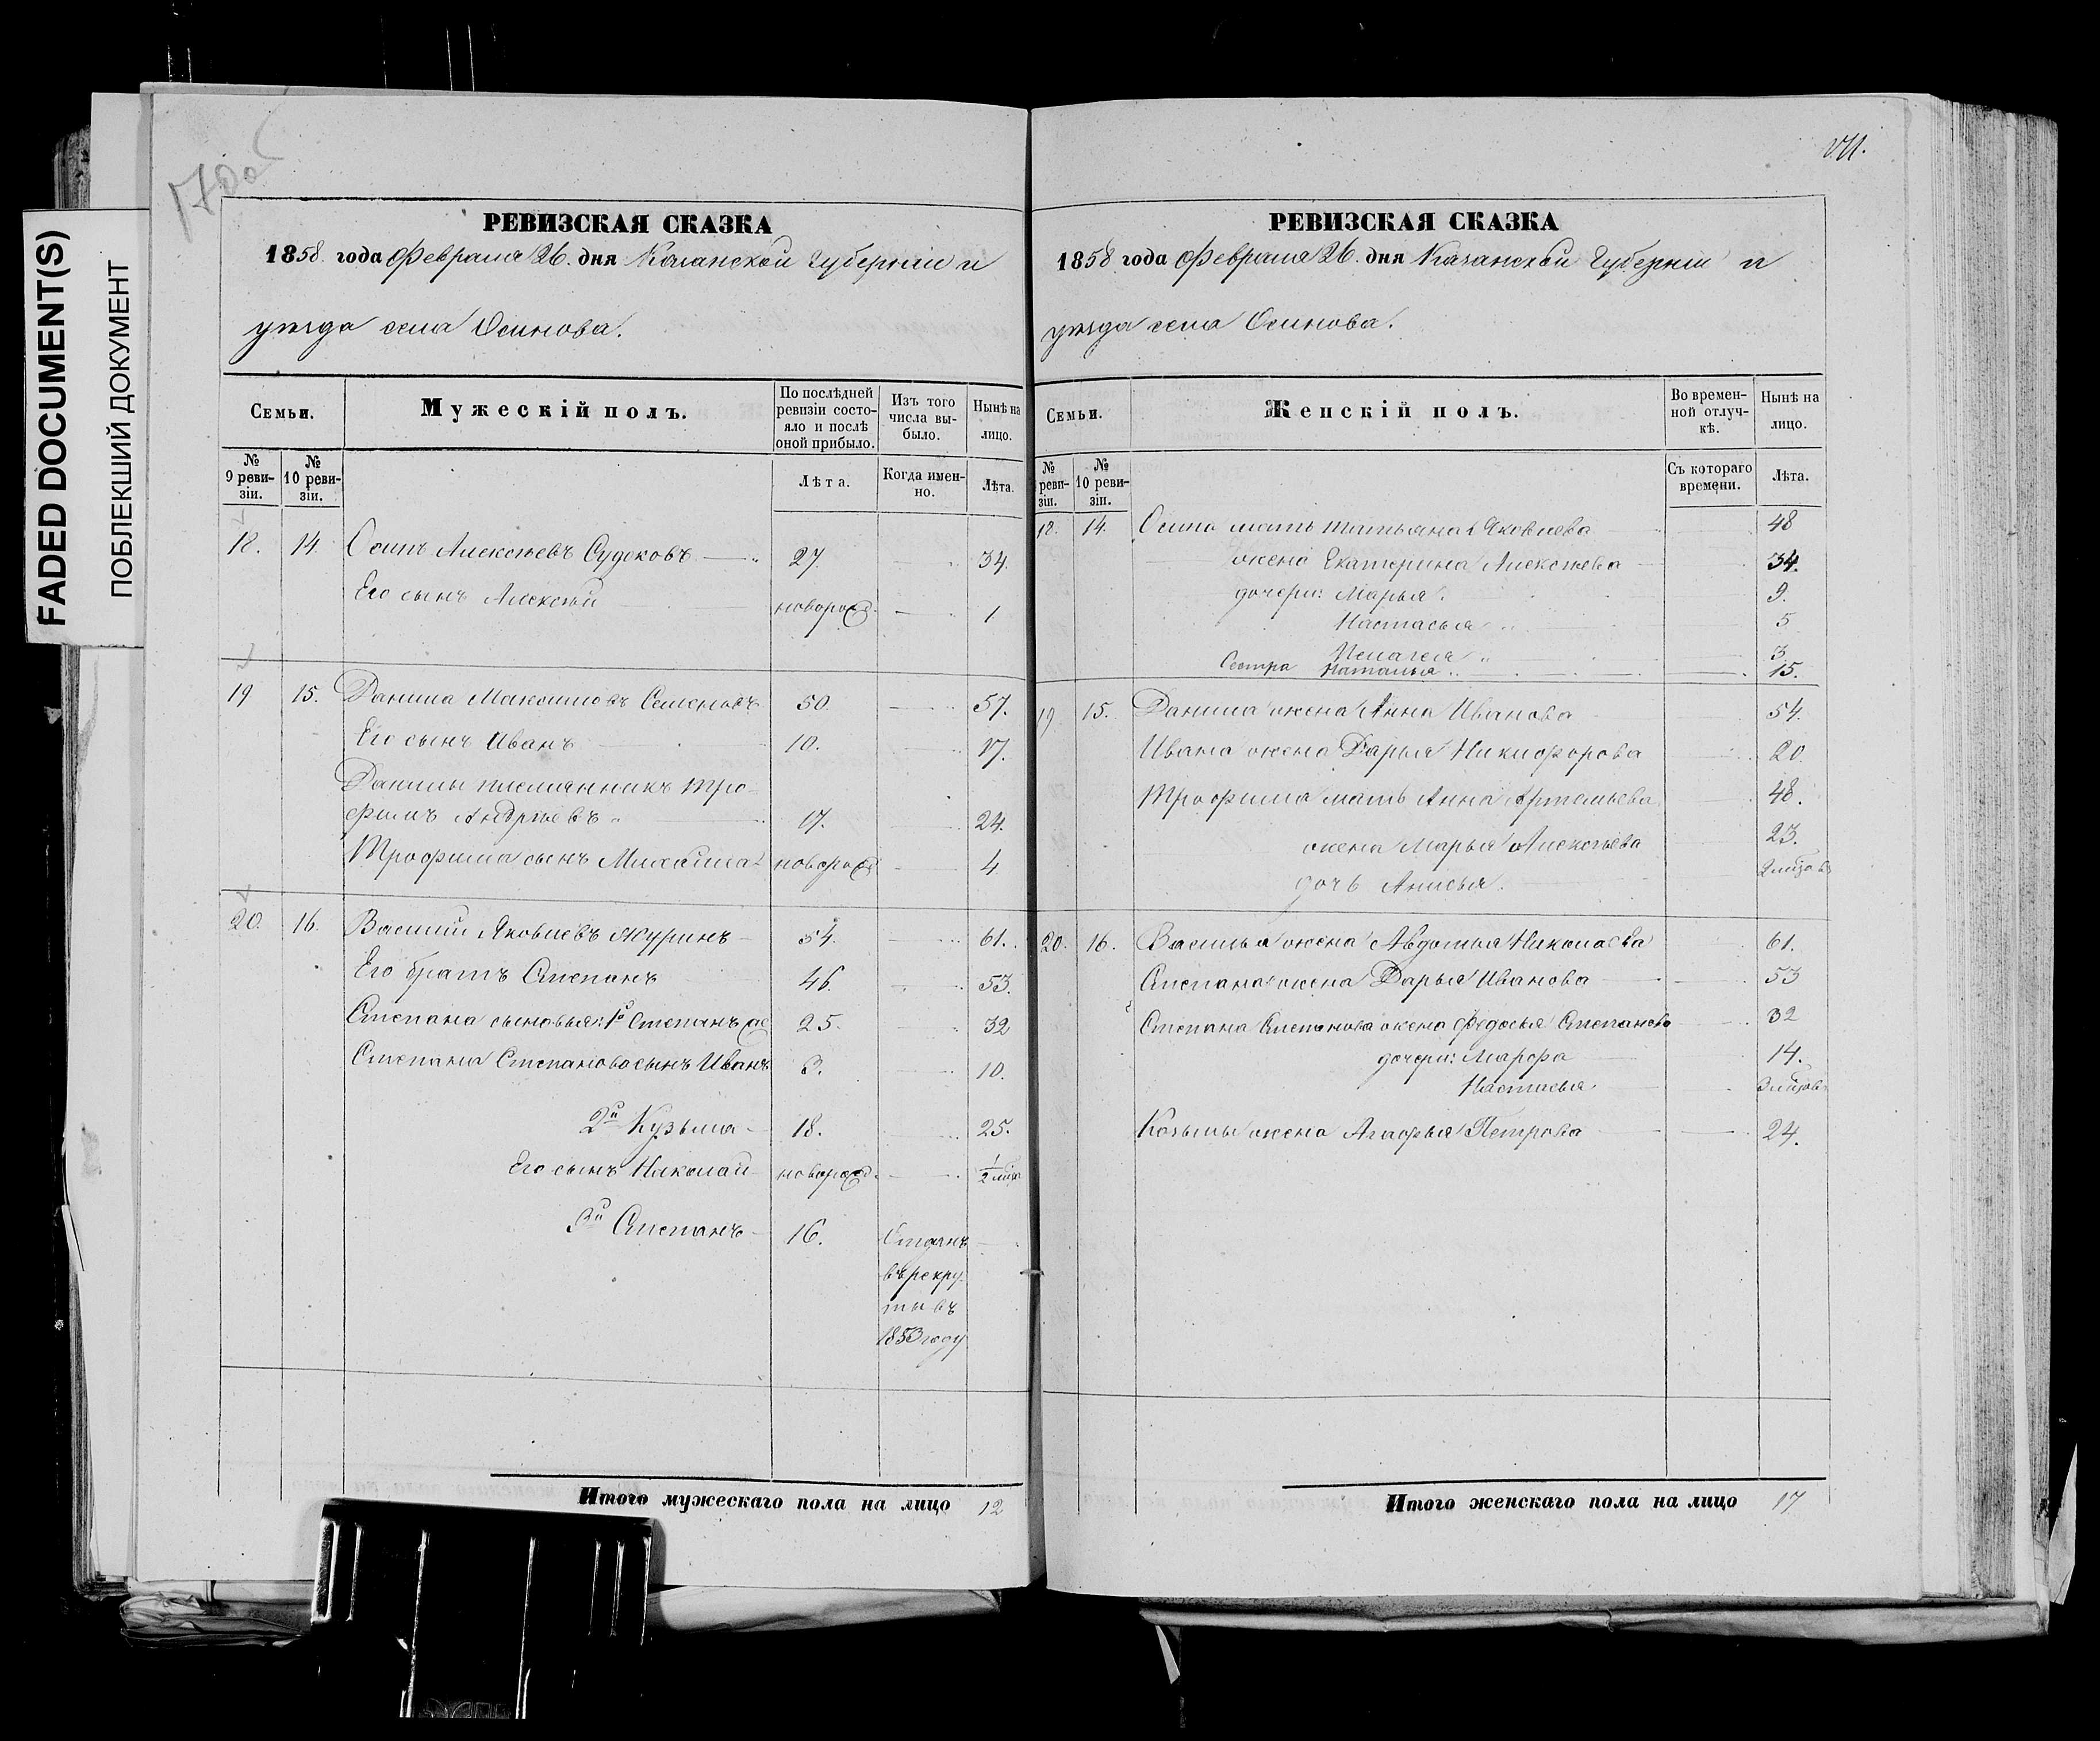 FADED DOCUMENT(S)
ПОБЛЕКШИЙ ДОКУМЕНТ
РЕВИЗСКАЯ СКАЗКА
1858 года Февраля 26. дня Казанской губерніи и
уѣзда села Осинова.
Семьи.
Мужескій полъ.
По послѣдней ревизіи состояло и послѣ оной прибыло.
Изъ того числа выбыло.
Нынѣ на лицо.
№ 9 ревизіи.
№ 10 ревизіи.
Лѣта.
Когда именно.
Лѣта.
18. 14 Осипъ Алексѣевъ Судоковъ 27. 34.
Его сынъ Алексѣй новорожд. 1
19 15. Данила Максимовъ Семеновъ 50. 57.
Его сынъ Иванъ 10. 17.
Данилы племянникъ Тро-
фимъ Андрѣевъ 17. 24.
Трофима сынъ Михайла новорожд 4
20. 16. Василій Яковлевъ Журинъ 54. 61.
Его братъ Степанъ 46. 53.
Степана сыновья: 1й Степанъ же 25. 32
Степана Степанова сынъ Иванъ 3. 10.
2й Кузьма 18. 25.
Его сынъ Николай новорожд. 1/2 мѣс
3й Степанъ 16. Отданъ
въ рекру-
ты въ
1853 году
Итого мужескаго пола на лицо 12
РЕВИЗСКАЯ СКАЗКА
1858 года Февраля 26. дня Казанской Губерніи и
уѣзда села Осинова.
Семьи.
Женскій полъ.
Во временной отлучкѣ.
Нынѣ на лицо.
№ ревизіи.
№ 10 ревизіи.
Съ котораго времени.
Лѣта.
18. 14. Осипа мать Татьяна Яковлева 48
жена Екатерина Алексѣева 34.
дочери: Марья. 9.
Настасья 5
Пелагея 3
Сестра Наталья 15.
19. 15. Данила жена Анна Иванова 54.
Ивана жена Дарья Никифорова 20.
Трофима мать Анна Артемьева 48.
жена Марья Алексѣева 23.
дочь Анисья.
20. 16. Василья жена Авдотья Николаева 61.
Степана жена Дарья Иванова 53
Степана Степанова жена Федосья Степанова 32
дочери: Марфа 14.
Настасья
Козьмы жена Агафья Петрова 24.
Итого женскаго пола на лицо 17